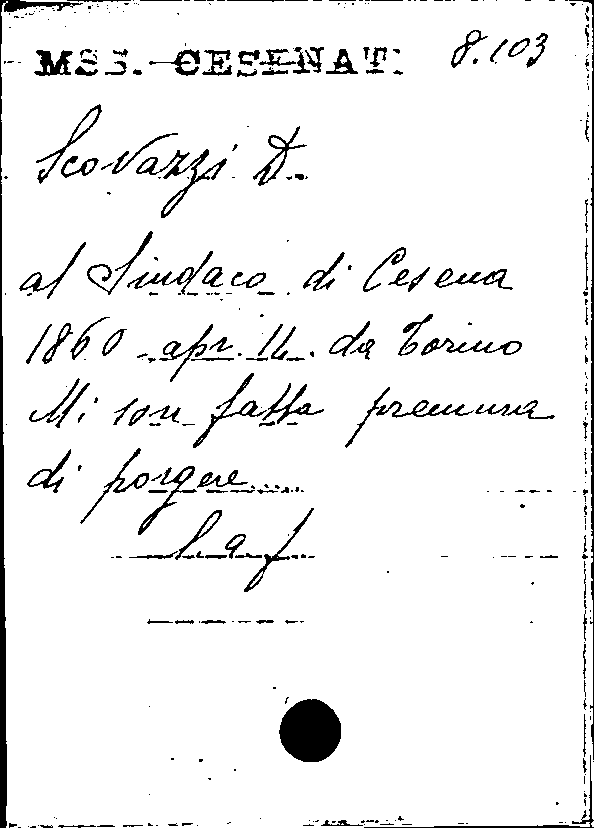 MSS. CESENATI 8.103
Scovazzi D.
al Sindaco di Cesena
1860 apr. 14. da Torino
Mi son fatta premura
di porgere....
l. a. f